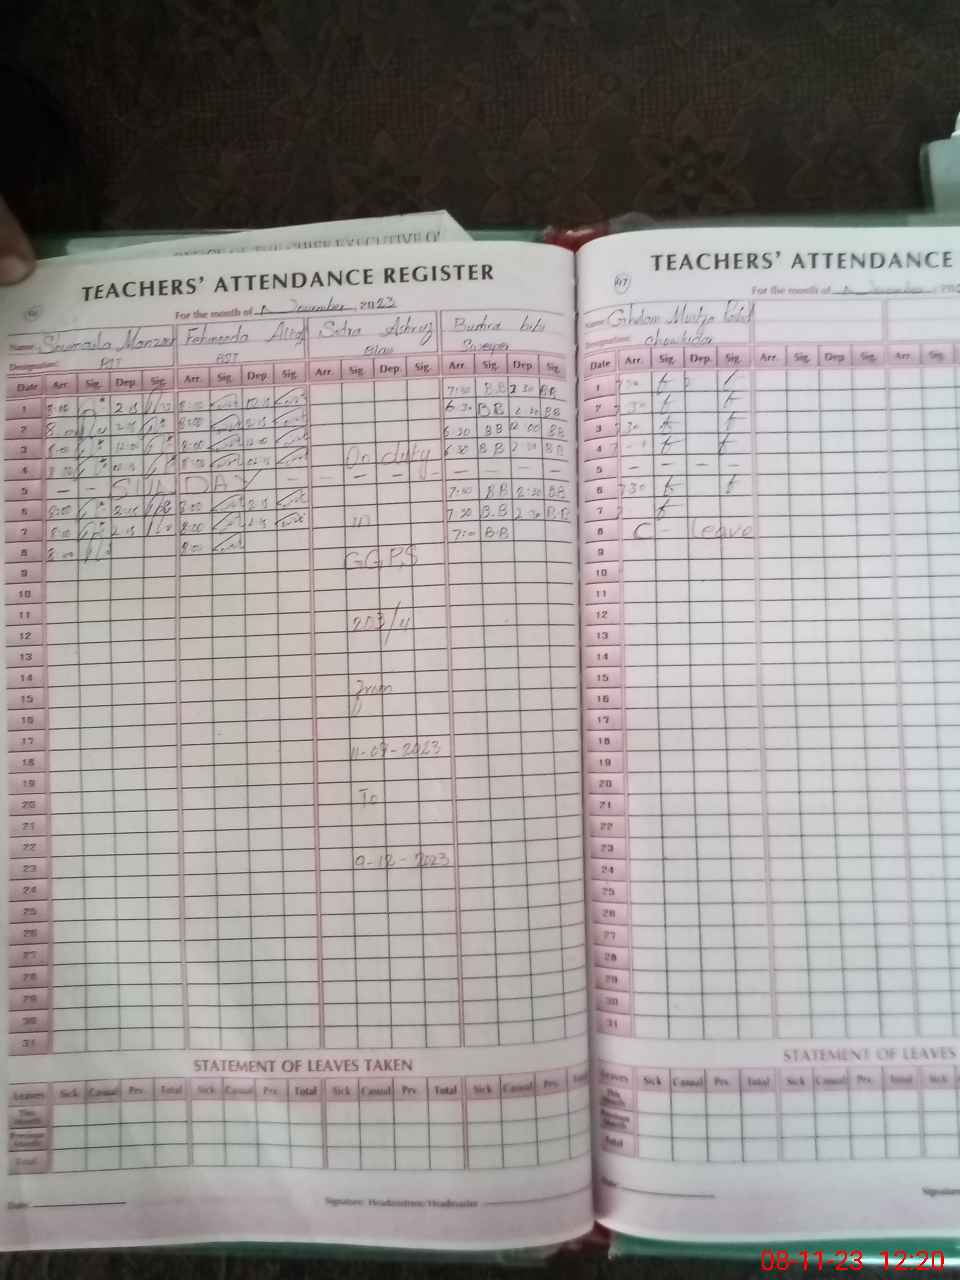 OFFICE OF THE CHIEF EXECUTIVE O
TEACHERS' ATTENDANCE REGISTER
For the month of November, 2023
Name: Shumaila Manzoor Fehmeeda Sidra Ashraf Bushra bibi
Designation: PST EST Sweeper
Date Arr. Sig. Dep. Sig. Arr. Sig. Dep. Sig. Arr. Sig. Dep. Sig. Arr. Sig. Dep. Sig.
1 8:00 2:15 8:00 02:15 7:30 B.B 2:30 BB
2 8:00 2:15 8:00 2:15 6:30 BB 2:30 BB
3 8:00 12:00 8:00 12:00 6:30 BB 12:00 BB
4 8:00 02:15 8:00 02:15 On duty 6:30 B.B 2:30 BB
5 — — SUNDAY — — — — — — — —
6 8:00 2:15 8:00 2:15 7:30 BB 2:30 BB
7 8:00 2:15 8:00 2:15 in 7:30 B.B 2:30 B.B
8 8:00 8:00 7:30 B.B
9 GGPS
10
11
12 203/
13
14
15 From
16
17
18 11-09-2023
19
20 To
21
22
23 9-12-2023
24
25
26
27
28
29
30
31
STATEMENT OF LEAVES TAKEN
Leaves Sick Casual Prv. Total Sick Casual Prv. Total Sick Casual Prv. Total Sick Casual Prv. Total
This Month
Previous Month
Total
Date: Signature: Headmistress/Headmaster
47
TEACHERS' ATTENDANCE
For the month of November, 202
Name: Ghulam
Designation: chowkidar
Date Arr. Sig. Dep. Sig. Arr. Sig. Dep. Sig. Arr. Sig.
1 7:30
2 7:30
3 7:30
4
5 — — — —
6 7:30
7
8 C - Leave
9
10
11
12
13
14
15
16
17
18
19
20
21
22
23
24
25
26
27
28
29
30
31
STATEMENT OF LEAVES
Leaves Sick Casual Prv. Total Sick Casual Prv. Total Sick
This Month
Previous Month
Total
Date: Signature
08-11-23 12:20